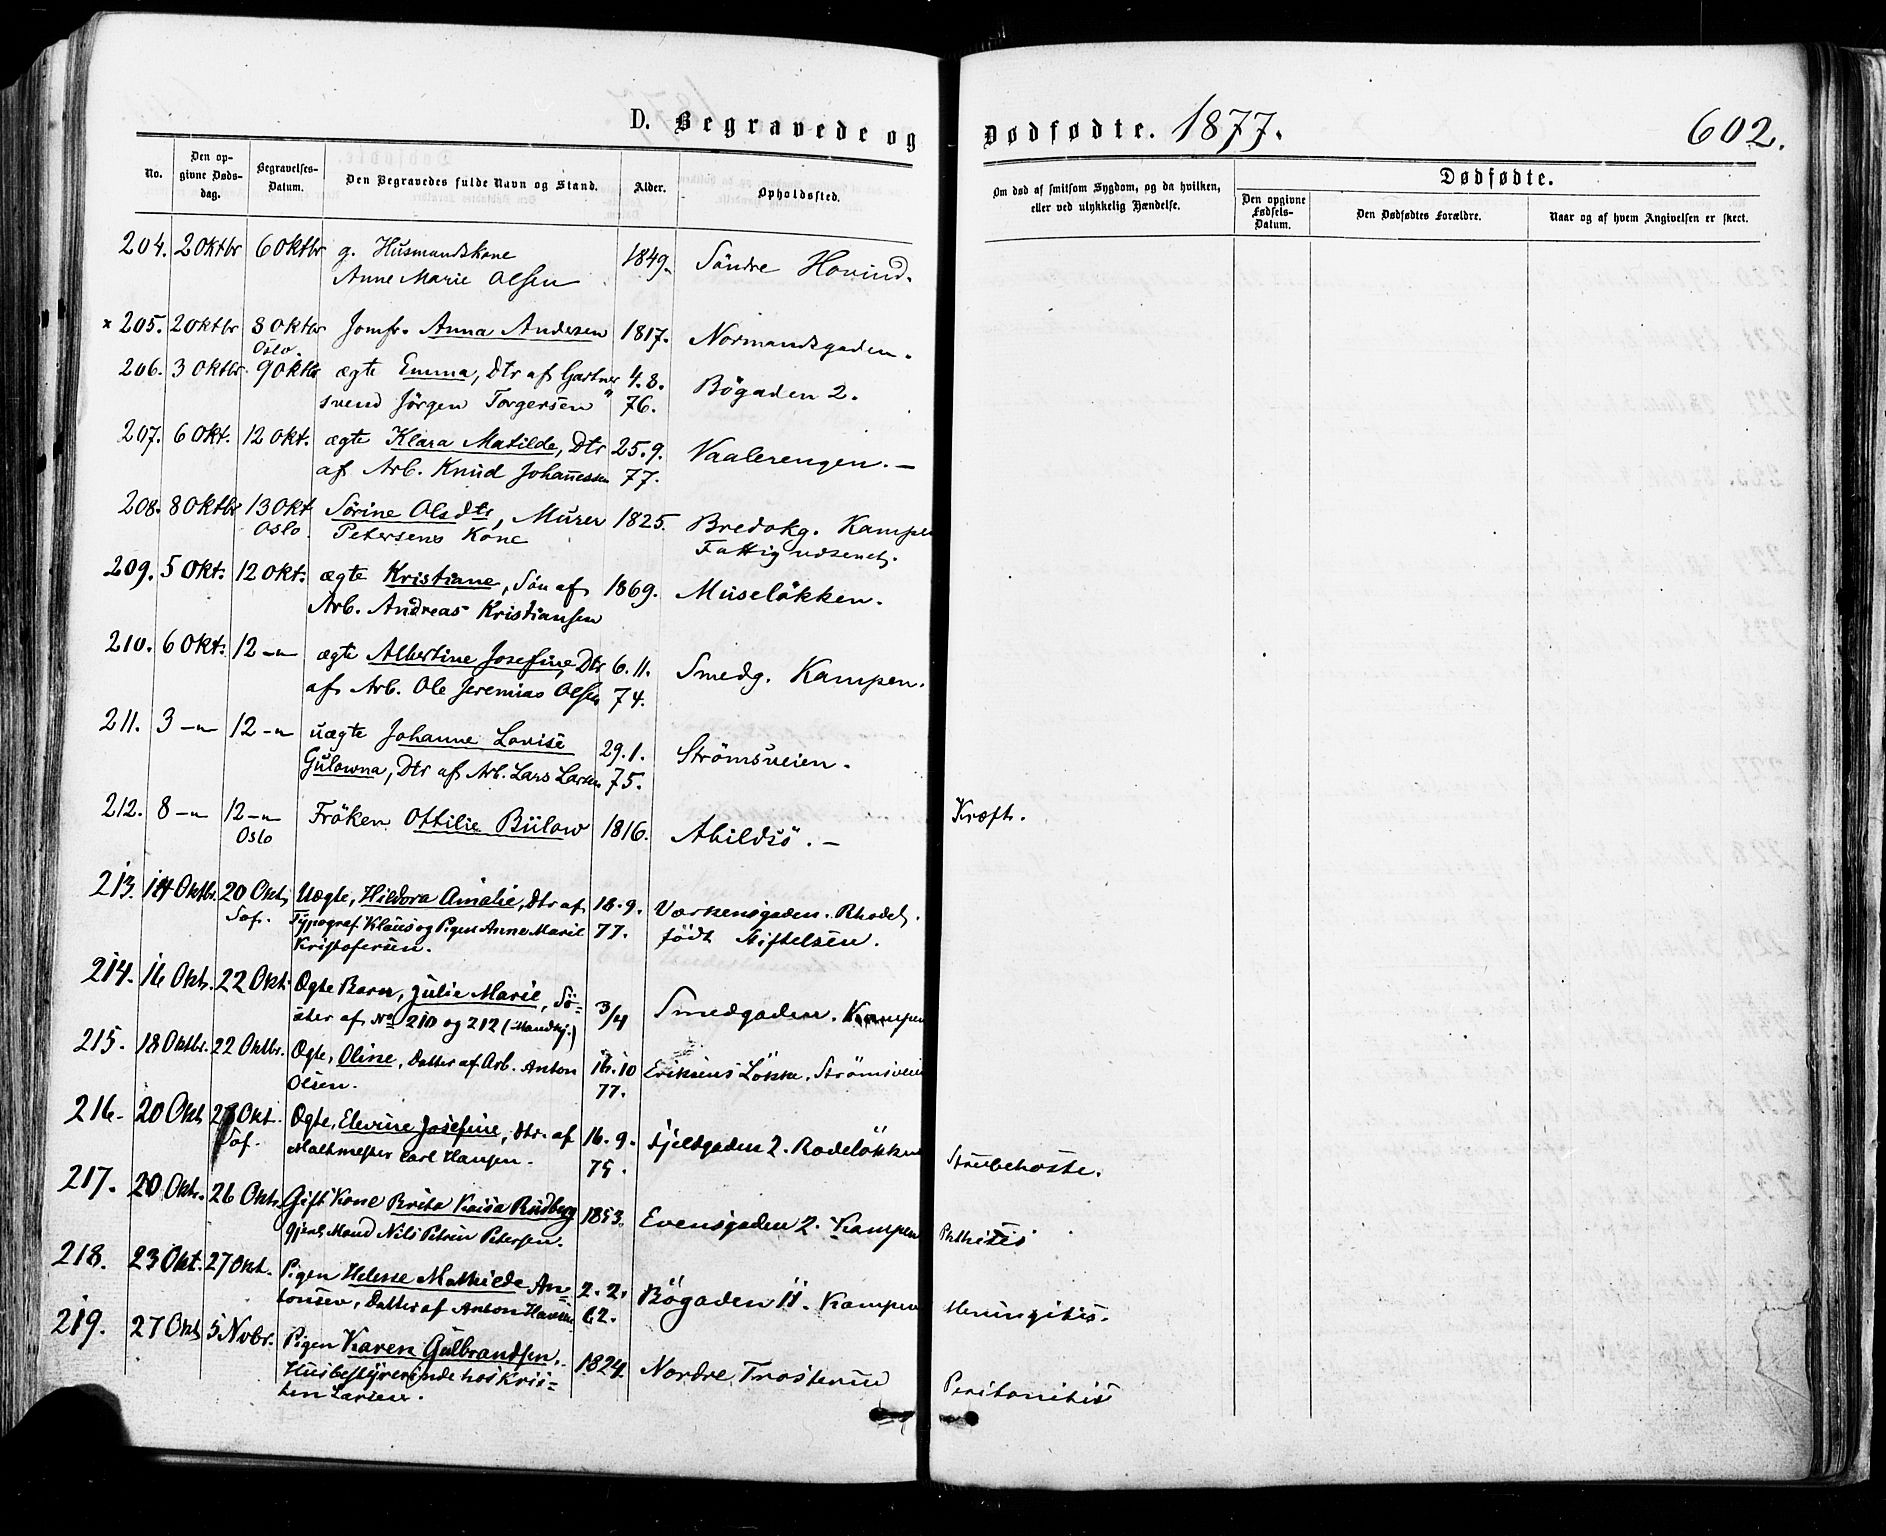 D. Begravede og Dødfødte. 1877. 602.
No.
Den opgivne Dødsdag.
Begravelses-Datum.
Den Begravedes fulde Navn og Stand.
Alder.
Opholdssted.
Om død af smitsom Sygdom, og da hvilken, eller ved ulykkelig Hændelse.
Dødfødte.
Den opgivne Fødsels-Datum.
Den Dødfødtes Forældre.
Naar og af hvem Angivelsen er skeet.
204. 2 Oktbr 6 Oktbr g. Husmandskone 1849. Söndre Hovind.
Anne Marie Olsen
x 205. 2 Oktbr 8 Oktbr Jomfr. Anna Andersen 1817. Normandsgaden.
Oslo.
206. 3 Oktbr. 9 Oktb ægte Emma, Dtr af Gartner 4.8. Bögaden 2.
svend Jörgen Torgersen 76.
207. 6 Okt. 12 Okt. ægte Klara Matilde, Dtr 25.9. Vaalerengen. —
af Arb. Knud Johannessen 77.
208. 8 Oktbr 13 Okt Sörine Olsdtr, Murer 1825. Bredokg. Kampen
Oslo. Petersens Kone Fattigvæsenet.
209. 5 Okt. 12 Okt. ægte Kristiane, Sön af 1869. Museløkken.
Arb. Andreas Kristiansen
210. 6 Okt. 12 —" ægte Albertine Josefine, Dtr 6.11. Smedg. Kampen.
af Arb. Ole Jeremias Olsen 74.
211. 3 —" 12 —" uægte Johanne Lovise 29.1. Strömsveien.
Gulowna, Dtr af Arb. Lars Larsen 75.
212. 8 —" 12 —" Fröken Ottilie Bülow 1816. Abildsö. — Kræft.
Oslo
213. 14 Oktbr. 20 Okt. Uægte, Hildora Amalie, Dtr af 18.9. Værkensgaden. Rhodel.
Sof. Typograf Klaus og Pigen Anne Marie 77. født Stiftelsen.
Kristofersen.
214. 16 Okt. 22 Okt. Ægte Barn, Julie Marie, Sö= 3/4 Smedgaden. Kampen
ster af No 210 og 212 (Mandkj.)
215. 18 Oktbr. 22 Oktbr. Ægte, Oline, Datter af Arb. Anton 16.10 Eriksens Løkke, Strömsveien
Olsen. 77.
216. 20 Okt 27 Okt. Ægte, Elevine Josefine, Dtr. af 16.9. Fjeldgaden 2. Rodeløkken Strubehoste.
Sof. Maltmester Carl Hansen. 75.
217. 20 Okt. 26 Okt. Gift Kone Brita Kaisa Rudberg 1853. Evensgaden 2. Kampen Phthisis
gjenl. Mand Nils Petrin Petersen.
218. 23 Okt. 27 Okt. Pigen Helene Mathilde An= 2.2. Bögaden 11. Kampen Meningitis.
tonsen, Datter af Anton Hansen 62.
219. 27 Okt 5 Novbr. Pigen Karen Gulbrandsen, 1824. Nordre Trosterud Peritonitis
Husbestyrerinde hos Kris=
ten Larsen.